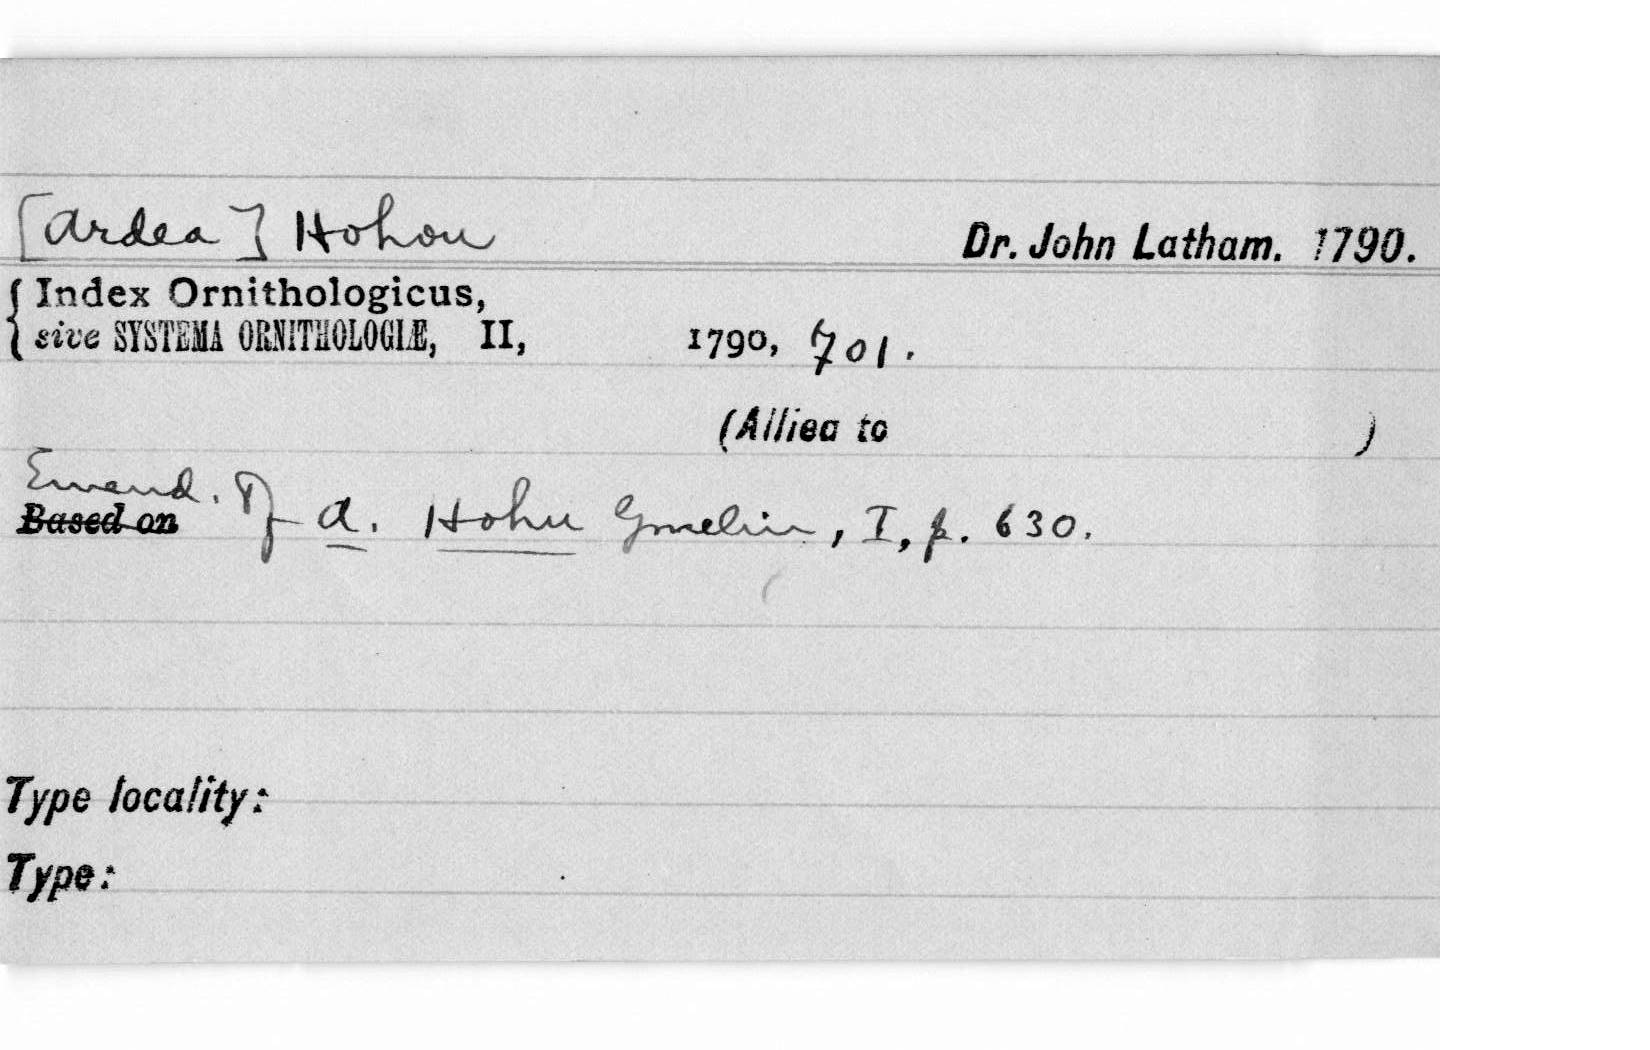 [Ardea] Hohou Dr. John Latham. 1790.
Index Ornithologicus,
sive SYSTEMA ORNITHOLOGIÆ, II, 1790, 701.
(Allied to )
Emend. of A. Hohu Gmelin, I, p. 630.
Based on
Type locality:
Type: